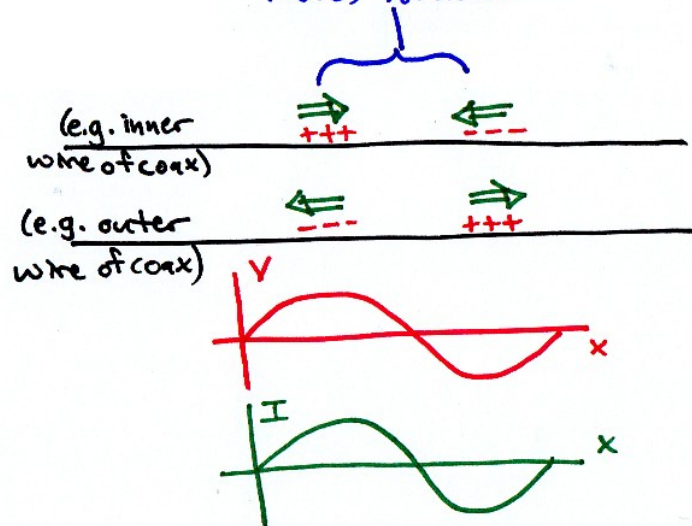 (e.g. inner
wire of coax)
+++
---
(e.g. outer
wire of coax)
---
+++
V
x
I
x